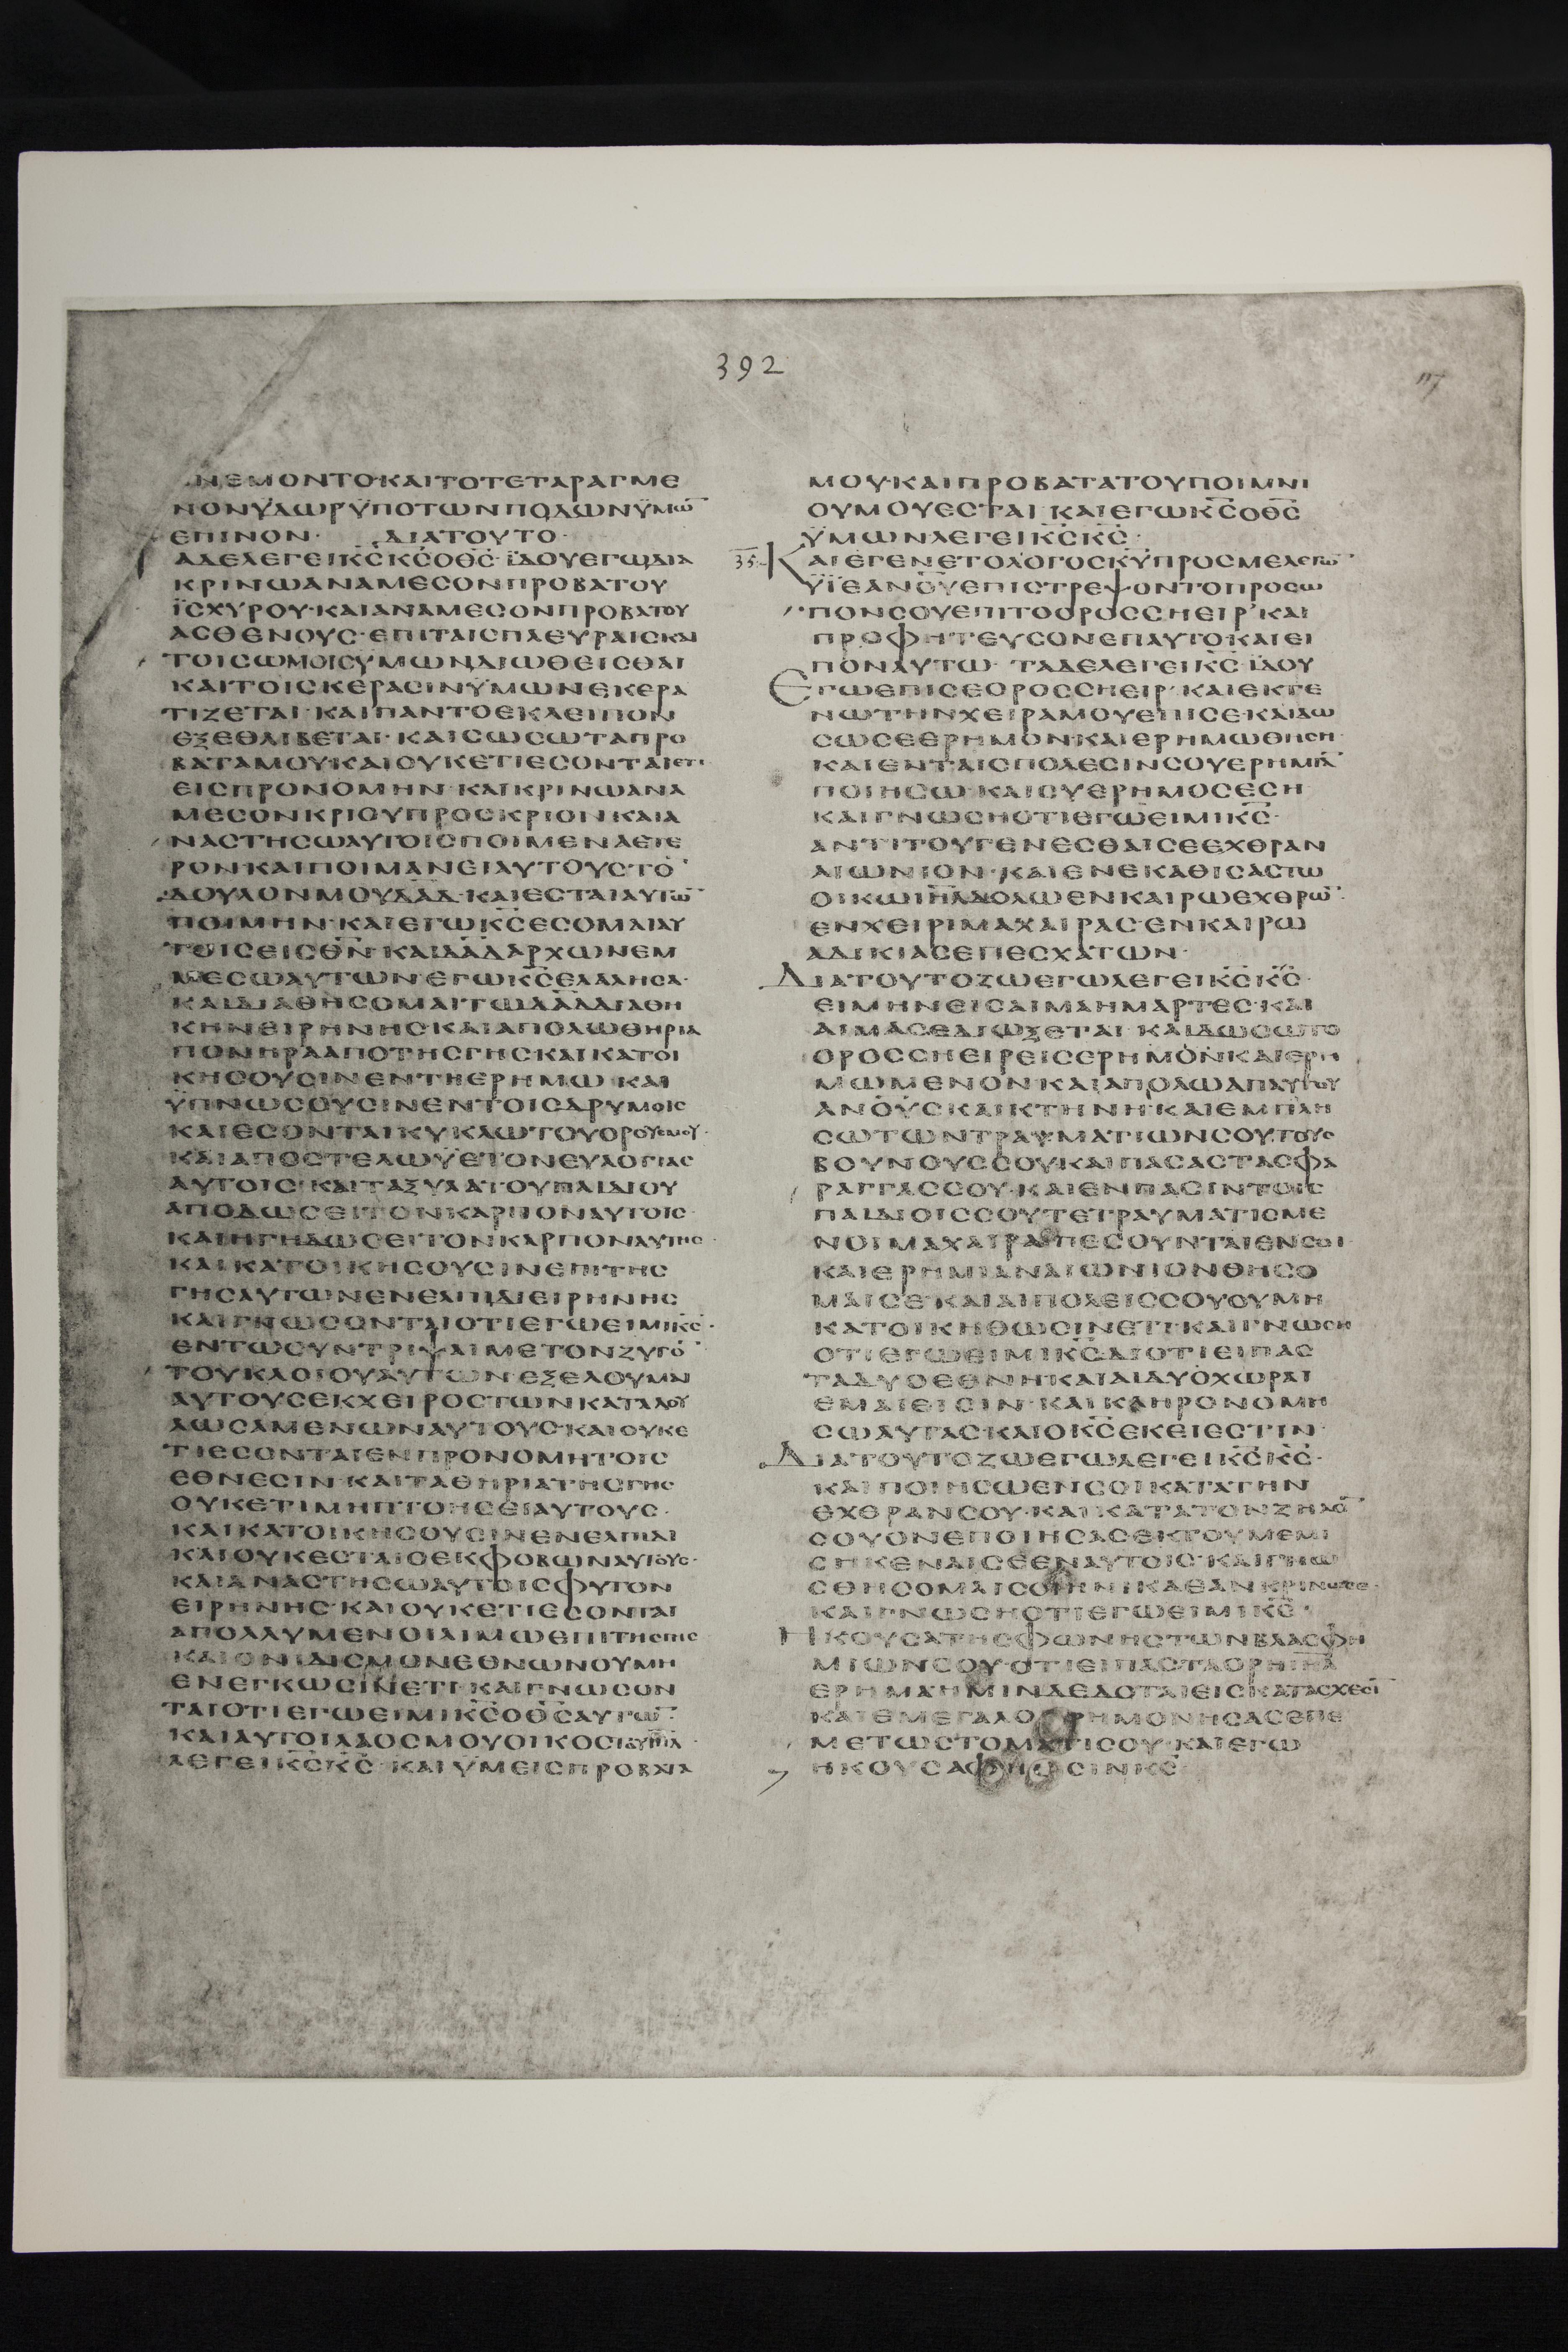 392
117
ΝΕΜΟΝΤΟ·ΚΑΙΤΟΤΕΤΑΡΑΓΜΕ
ΝΟΝΫΔΩΡΫΠΟΤΩΝΠΟΔΩΝΫΜΩ̅
ΕΠΙΝΟΝ· ΔΙΑΤΟΥΤΟ·
ΑΔΕΛΕΓΕΙΚ̅Σ̅Κ̅Σ̅ΟΘ̅Σ̅·ΪΔΟΥΕΓΩΔΙΑ
ΚΡΙΝΩΑΝΑΜΕΣΟΝΠΡΟΒΑΤΟΥ
ΪΣΧΥΡΟΥ·ΚΑΙΑΝΑΜΕΣΟΝΠΡΟΒΑΤΟΥ
ΑΣΘΕΝΟΥΣ·ΕΠΙΤΑΙΣΠΛΕΥΡΑΙΣΚΑΙ
ΤΟΙΣΩΜΟΙΣΥΜΩΝΔΙΩΘΕΙΣΘΑΙ
ΚΑΙΤΟΙΣΚΕΡΑΣΙΝΥΜΩΝΕΚΕΡΑ
ΤΙΖΕΤΑΙ·ΚΑΙΠΑΝΤΟΕΚΛΕΙΠΟΝ
ΕΞΕΘΛΙΒΕΤΑΙ·ΚΑΙΣΩΣΩΤΑΠΡΟ
ΒΑΤΑΜΟΥ·ΚΑΙΟΥΚΕΤΙΕΣΟΝΤΑΙΕΤΙ
ΕΙΣΠΡΟΝΟΜΗΝ·ΚΑΙΚΡΙΝΩΑΝΑ
ΜΕΣΟΝΚΡΙΟΥΠΡΟΣΚΡΙΟΝ·ΚΑΙΑ
ΝΑΣΤΗΣΩΑΥΤΟΙΣΠΟΙΜΕΝΑΕΤΕ
ΡΟΝ·ΚΑΙΠΟΙΜΑΝΕΙΑΥΤΟΥΣΤΟ̅
ΔΟΥΛΟΝΜΟΥΔ̅Α̅Δ̅·ΚΑΙΕΣΤΑΙΑΥΤΩ̅
ΠΟΙΜΗΝ·ΚΑΙΕΓΩΚ̅Σ̅ΕΣΟΜΑΙΑΥ
ΤΟΙΣΕΙΣΘ̅Ν̅·ΚΑΙΔ̅Α̅Δ̅ΑΡΧΩΝΕΜ
ΜΕΣΩΑΥΤΩΝ·ΕΓΩΚ̅Σ̅ΕΛΑΛΗΣΑ·
ΚΑΙΔΙΑΘΗΣΟΜΑΙΤΩΔ̅Α̅Δ̅ΔΙΑΘΗ
ΚΗΝΕΙΡΗΝΗΣ·ΚΑΙΑΠΟΛΩΘΗΡΙΑ
ΠΟΝΗΡΑΑΠΟΤΗΣΓΗΣ·ΚΑΙΚΑΤΟΙ
ΚΗΣΟΥΣΙΝΕΝΤΗΕΡΗΜΩ·ΚΑΙ
ΫΠΝΩΣΟΥΣΙΝΕΝΤΟΙΣΔΡΥΜΟΙΣ
ΚΑΙΕΣΟΝΤΑΙΚΥΚΛΩΤΟΥΟΡΟΥΣΜΟΥ·
ΚΑΙΑΠΟΣΤΕΛΩΫΕΤΟΝΕΥΛΟΓΙΑΣ
ΑΥΤΟΙΣ·ΚΑΙΤΑΞΥΛΑΤΟΥΠΑΙΔΙΟΥ
ΑΠΟΔΩΣΕΙΤΟΝΚΑΡΠΟΝΑΥΤΟΙΣ·
ΚΑΙΗΓΗΔΩΣΕΙΤΟΝΚΑΡΠΟΝΑΥΤΗΣ·
ΚΑΙΚΑΤΟΙΚΗΣΟΥΣΙΝΕΠΙΤΗΣ
ΓΗΣΑΥΤΩΝΕΝΕΛΠΙΔΙΕΙΡΗΝΗΣ
ΚΑΙΓΝΩΣΟΝΤΑΙΟΤΙΕΓΩΕΙΜΙΚ̅Σ̅·
ΕΝΤΩΣΥΝΤΡΙΨΑΙΜΕΤΟΝΖΥΓΟ̅
ΤΟΥΚΛΟΙΟΥΑΥΤΩΝ·ΕΞΕΛΟΥΜΑΙ
ΑΥΤΟΥΣΕΚΧΕΙΡΟΣΤΩΝΚΑΤΑΔΟΥ
ΛΩΣΑΜΕΝΩΝΑΥΤΟΥΣ·ΚΑΙΟΥΚΕ
ΤΙΕΣΟΝΤΑΙΕΝΠΡΟΝΟΜΗΤΟΙΣ
ΕΘΝΕΣΙΝ·ΚΑΙΤΑΘΗΡΙΑΤΗΣΓΗΣ
ΟΥΚΕΤΙΜΗΠΤΟΗΣΕΙΑΥΤΟΥΣ·
ΚΑΙΚΑΤΟΙΚΗΣΟΥΣΙΝΕΝΕΛΠΙΔΙ
ΚΑΙΟΥΚΕΣΤΑΙΟΕΚΦΟΒΩΝΑΥΤΟΥΣ·
ΚΑΙΑΝΑΣΤΗΣΩΑΥΤΟΙΣΦΥΤΟΝ
ΕΙΡΗΝΗΣ·ΚΑΙΟΥΚΕΤΙΕΣΟΝΤΑΙ
ΑΠΟΛΛΥΜΕΝΟΙΛΙΜΩΕΠΙΤΗΣΓΗΣ
ΚΑΙΟΝΙΔΙΣΜΟΝΕΘΝΩΝΟΥΜΗ
ΕΝΕΓΚΩΣΙΝΕΤΙ·ΚΑΙΓΝΩΣΟΝ
ΤΑΙΟΤΙΕΓΩΕΙΜΙΚ̅Σ̅ΟΘ̅Σ̅ΑΥΤΩ̅
ΚΑΙΑΥΤΟΙΛΑΟΣΜΟΥΟΙΚΟΣΤΟΥΙ̅Η̅Λ̅·
ΛΕΓΕΙΚ̅Σ̅Κ̅Σ̅·ΚΑΙΫΜΕΙΣΠΡΟΒΑΤΑ
ΜΟΥ·ΚΑΙΠΡΟΒΑΤΑΤΟΥΠΟΙΜΝΙ
ΟΥΜΟΥΕΣΤΑΙ·ΚΑΙΕΓΩΚ̅Σ̅ΟΘ̅Σ̅
ΫΜΩΝΛΕΓΕΙΚ̅Σ̅Κ̅Σ̅·
35 ΚΑΙΕΓΕΝΕΤΟΛΟΓΟΣΚ̅Υ̅ΠΡΟΣΜΕΛΕΓΩ̅
ΫΪΕΑΝ̅Ο̅Υ̅ΕΠΙΣΤΡΕΨΟΝΤΟΠΡΟΣΩ
ΠΟΝΣΟΥΕΠΙΤΟΟΡΟΣΣΗΕΙΡ·ΚΑΙ
ΠΡΟΦΗΤΕΥΣΟΝΕΠΑΥΤΟ·ΚΑΙΕΙ
ΠΟΝΑΥΤΩ· ΤΑΔΕΛΕΓΕΙΚ̅Σ̅·ΪΔΟΥ
ΕΓΩΕΠΙΣΕΟΡΟΣΣΗΕΙΡ·ΚΑΙΕΚΤΕ
ΝΩΤΗΝΧΕΙΡΑΜΟΥΕΠΙΣΕ·ΚΑΙΔΩ
ΣΩΣΕΕΡΗΜΟΝ·ΚΑΙΕΡΗΜΩΘΗΣΗ·
ΚΑΙΕΝΤΑΙΣΠΟΛΕΣΙΝΣΟΥΕΡΗΜΙΑ̅
ΠΟΙΗΣΩ·ΚΑΙΣΥΕΡΗΜΟΣΕΣΗ·
ΚΑΙΓΝΩΣΗΟΤΙΕΓΩΕΙΜΙΚ̅Σ̅·
ΑΝΤΙΤΟΥΓΕΝΕΣΘΑΙΣΕΕΧΘΡΑΝ
ΑΙΩΝΙΟΝ·ΚΑΙΕΝΕΚΑΘΙΣΑΣΤΩ
ΟΙΚΩΙ̅Η̅Λ̅ΔΟΛΩΕΝΚΑΙΡΩΕΧΘΡΩ̅·
ΕΝΧΕΙΡΙΜΑΧΑΙΡΑΣ·ΕΝΚΑΙΡΩ
ΑΔΙΚΙΑΣΕΠΕΣΧΑΤΩΝ·
ΔΙΑΤΟΥΤΟΖΩΕΓΩΛΕΓΕΙΚ̅Σ̅Κ̅Σ̅·
ΕΙΜΗΝΕΙΣΑΙΜΑΗΜΑΡΤΕΣ·ΚΑΙ
ΑΙΜΑΣΕΔΙΩΞΕΤΑΙ·ΚΑΙΔΩΣΩΤΟ
ΟΡΟΣΣΗΕΙΡΕΙΣΕΡΗΜΟΝ·ΚΑΙΕΡΗ
ΜΩΜΕΝΟΝ·ΚΑΙΑΠΟΛΩΑΠΑΥΤΟΥ
ΑΝ̅Ο̅Υ̅Σ̅ΚΑΙΚΤΗΝΗ·ΚΑΙΕΜΠΛΗ
ΣΩΤΩΝΤΡΑΥΜΑΤΙΩΝΣΟΥ·ΤΟΥΣ
ΒΟΥΝΟΥΣΣΟΥ·ΚΑΙΠΑΣΑΣΤΑΣΦΑ
ΡΑΓΓΑΣΣΟΥ·ΚΑΙΕΝΠΑΣΙΝΤΟΙΣ
ΠΑΙΔΙΟΙΣΣΟΥ·ΤΕΤΡΑΥΜΑΤΙΣΜΕ
ΝΟΙΜΑΧΑΙΡΑΠΕΣΟΥΝΤΑΙΕΝΣΟΙ·
ΚΑΙΕΡΗΜΙΑΝΑΙΩΝΙΟΝΘΗΣΟ
ΜΑΙΣΕ·ΚΑΙΑΙΠΟΛΕΙΣΣΟΥΟΥΜΗ
ΚΑΤΟΙΚΗΘΩΣΙΝΕΤΙ·ΚΑΙΓΝΩΣΗ
ΟΤΙΕΓΩΕΙΜΙΚ̅Σ̅·ΔΙΟΤΙΕΙΠΑΣ
ΤΑΔΥΟΕΘΝΗ·ΚΑΙΑΙΔΥΟΧΩΡΑΙ
ΕΜΑΙΕΙΣΙΝ·ΚΑΙΚΛΗΡΟΝΟΜΗ
ΣΩΑΥΤΑΣ·ΚΑΙΟΚ̅Σ̅ΕΚΕΙΕΣΤΙΝ·
ΔΙΑΤΟΥΤΟΖΩΕΓΩΛΕΓΕΙΚ̅Σ̅Κ̅Σ̅·
ΚΑΙΠΟΙΗΣΩΕΝΣΟΙΚΑΤΑΤΗΝ
ΕΧΘΡΑΝΣΟΥ·ΚΑΙΚΑΤΑΤΟΝΖΗΛΟ̅
ΣΟΥΟΝΕΠΟΙΗΣΑΣΕΚΤΟΥΜΕΜΙ
ΣΗΚΕΝΑΙΣΕΕΝΑΥΤΟΙΣ·ΚΑΙΓΝΩ
ΣΘΗΣΟΜΑΙΣΟΙΗΝΙΚΑΕΑΝΚΡΙΝΩΣΕ·
ΚΑΙΓΝΩΣΗΟΤΙΕΓΩΕΙΜΙΚ̅Σ̅·
ΗΚΟΥΣΑΤΗΣΦΩΝΗΣΤΩΝΒΛΑΣΦΗ
ΜΙΩΝΣΟΥ·ΟΤΙΕΙΠΑΣΤΑΟΡΗΙ̅Η̅Λ̅
ΕΡΗΜΑΗΜΙΝΔΕΔΟΤΑΙΕΙΣΚΑΤΑΣΧΕΣΙ̅
ΚΑΙΕΜΕΓΑΛΟΡΡΗΜΟΝΗΣΑΣΕΠΕ
ΜΕΤΩΣΤΟΜΑΤΙΣΟΥ·ΚΑΙΕΓΩ
ΗΚΟΥΣΑ